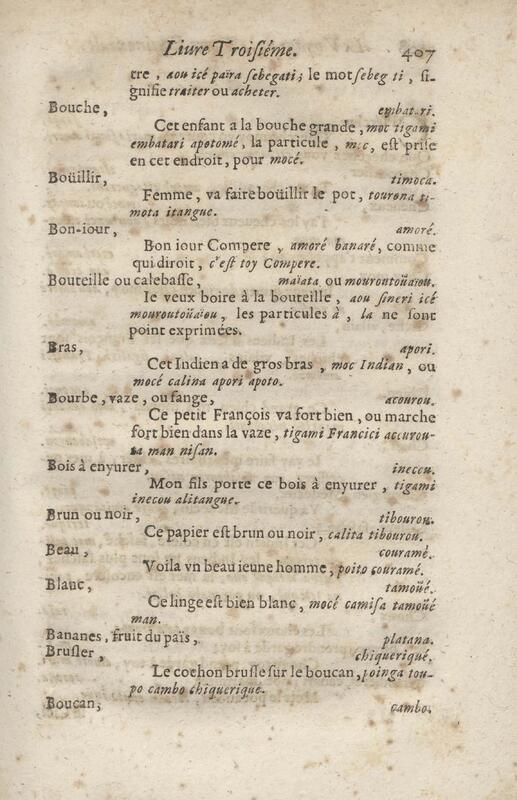 Liure Troisiéme. 407
tre, aou icé païra sebegati; le mot sebeg ti, si-
gnifie traiter ou acheter.
Bouche, embatari.
Cet enfant a la bouche grande, moc tigami
embatari apotomé, la particule, moc, est prise
en cet endroit, pour mocé.
Boüillir, timoca.
Femme, va faire boüillir le pot, tourona ti-
mota itangue.
Bon-iour, amoré.
Bon iour Compere, amoré banaré, comme
qui diroit, c'est toy Compere.
Bouteille ou calebasse, maïata ou mouroutoüaïou.
Ie veux boire à la bouteille, aou sineri icé
mouroutoüaïou, les particules à, la ne sont
point exprimées.
Bras, apori.
Cet Indien a de gros bras, moc Indian, ou
mocé calina apori apoto.
Bourbe, vaze, ou fange, acourou.
Ce petit François va fort bien, ou marche
fort bien dans la vaze, tigami Francici accurou-
ta man nisan.
Bois à enyurer, ineccu.
Mon fils porte ce bois à enyurer, tigami
inecou alitangue.
Brun ou noir, tibourou.
Ce papier est brun ou noir, calita tibourou.
Beau, couramé.
Voila vn beau ieune homme, poito couramé.
Blanc, tamoüé.
Ce linge est bien blanc, mocé camisa tamoüé
man.
Bananes, fruit du païs, platana.
Brusler, chiqueriqué.
Le cochon brusle sur le boucan, poinga tou-
po cambo chiquerique.
Boucan, cambo.